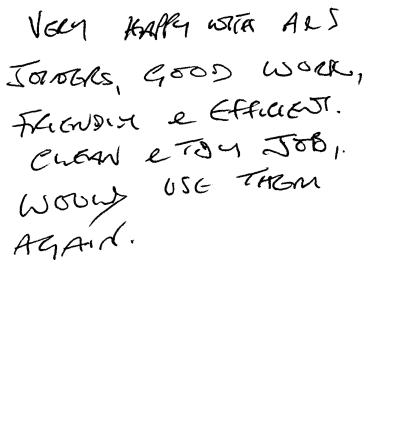 VERY HAPPY WITH ARS
JOINERS, GOOD WORK,
FRIENDLY & EFFICIENT.
CLEAN & TIDY JOB,
WOULD USE THEM
AGAIN.